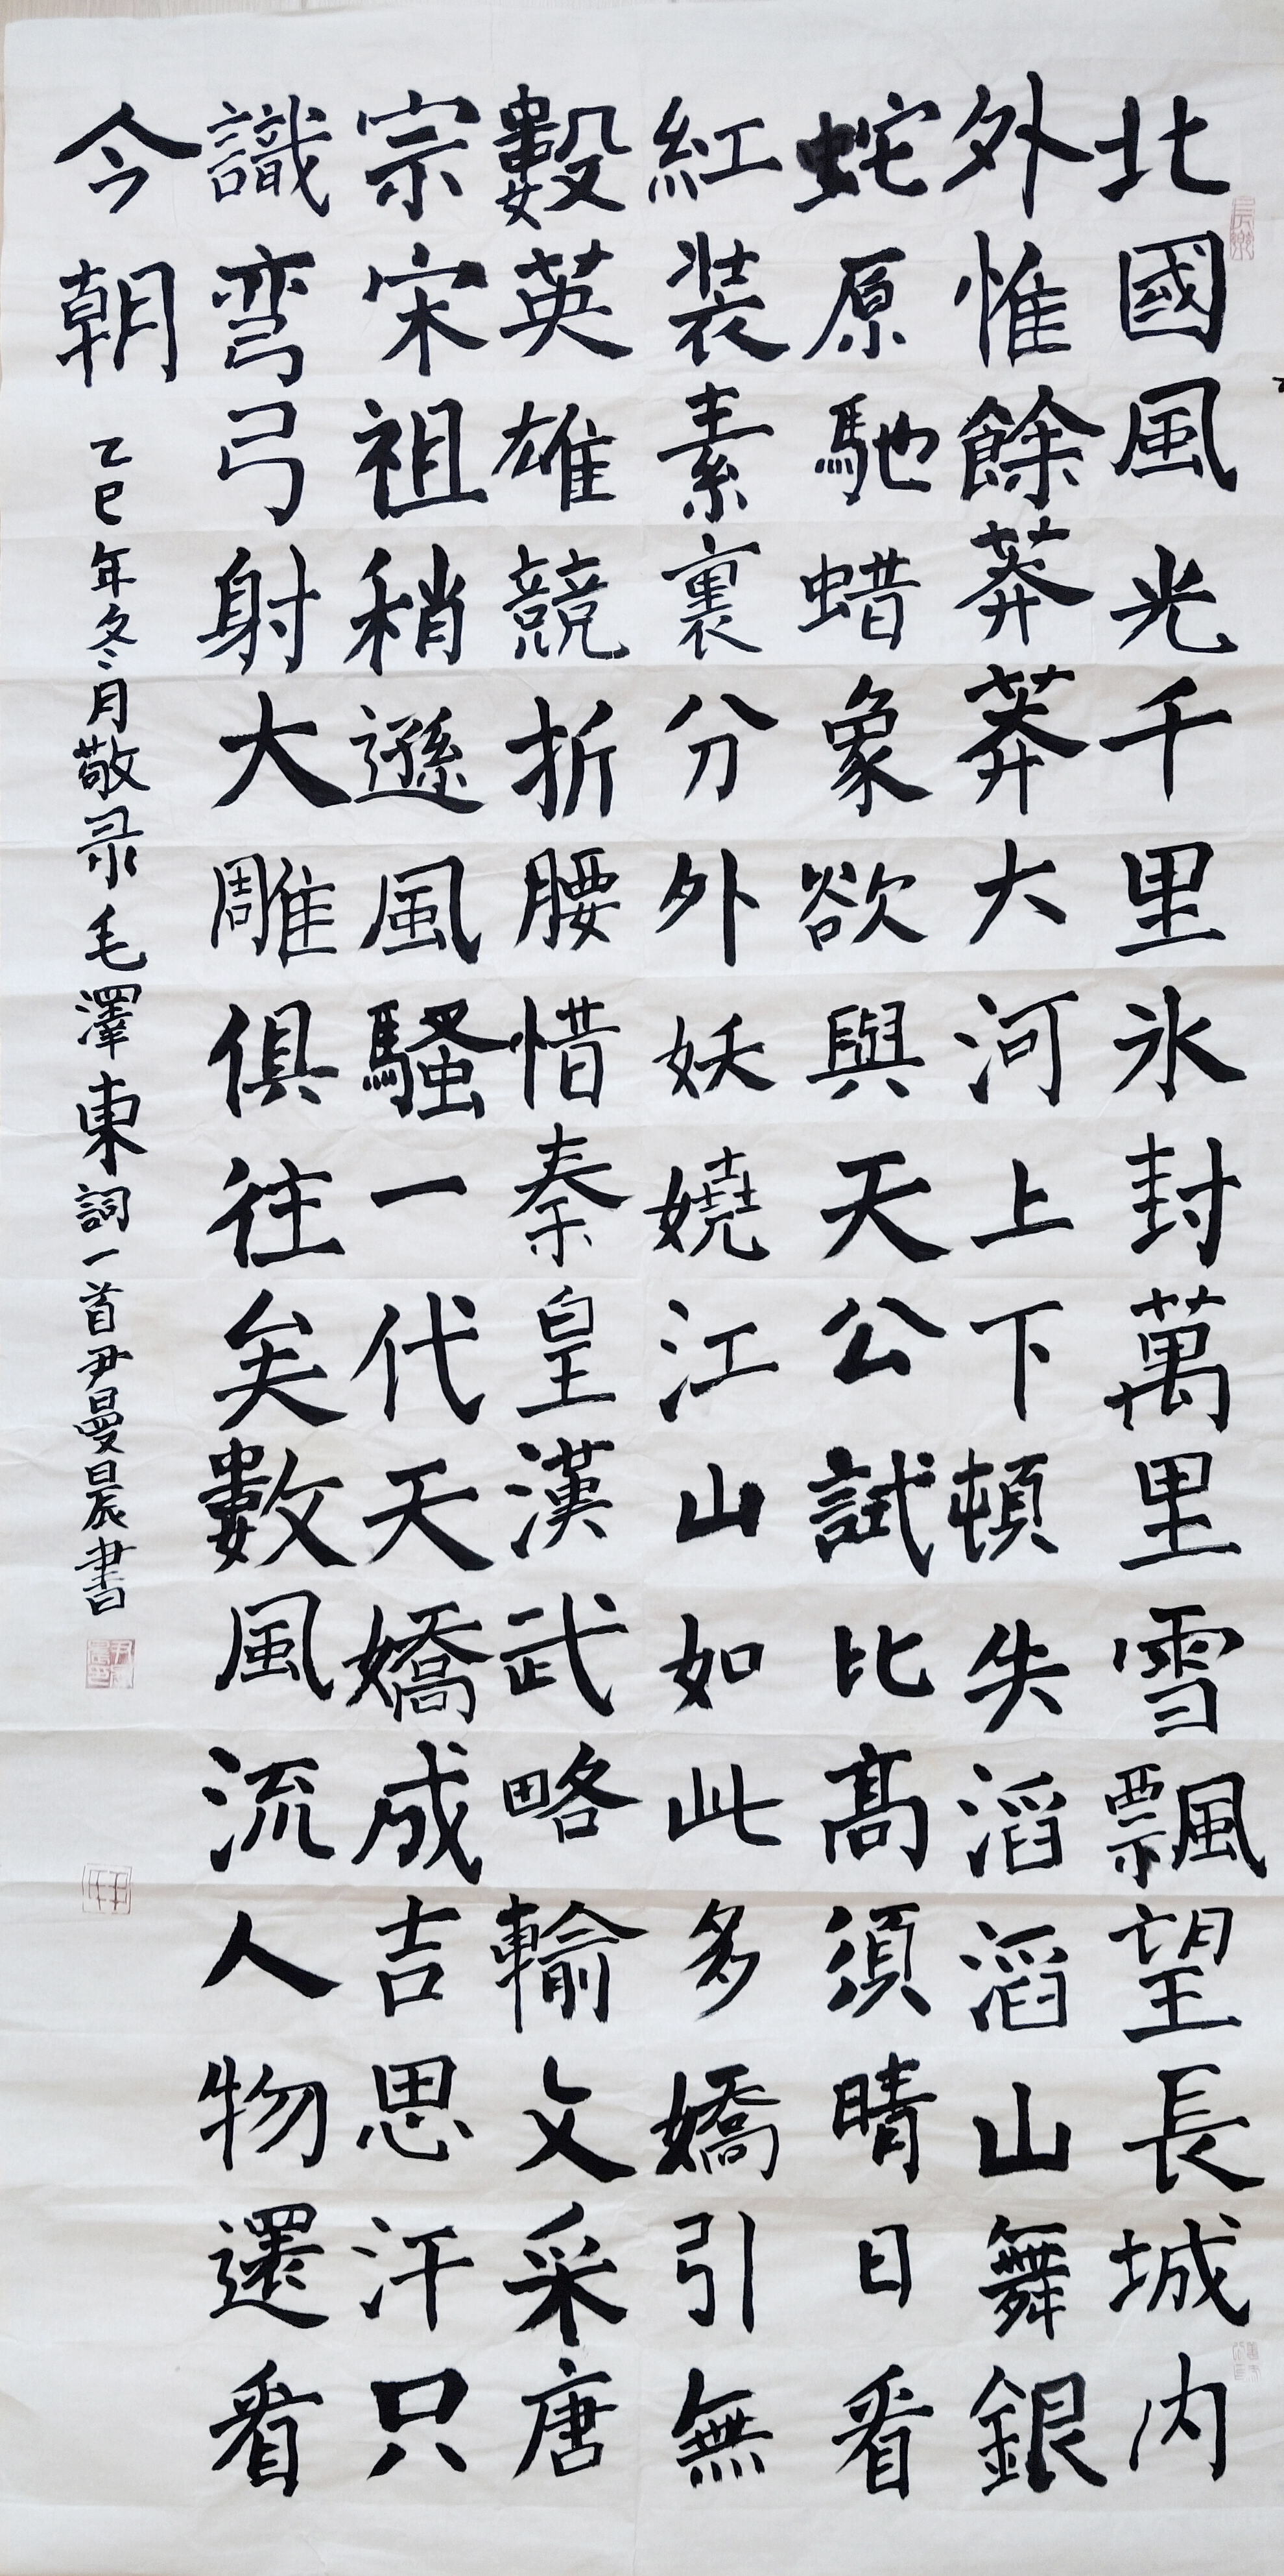 北國風光千里氷封萬里雪飄望長城内
外惟餘莽莽大河上下頓失滔滔山舞銀
蛇原馳蜡象欲與天公試比髙須晴日看
紅装素裏分外妖嬈江山如此多嬌引無
數英雄競折腰惜秦皇漢武略輸文采唐
宗宋祖稍遜風騷一代天嬌成吉思汗只
識弯弓射大雕俱往矣數風流人物還看
今朝
乙巳年冬月敬录毛澤東詞一首尹曼晨書
長樂